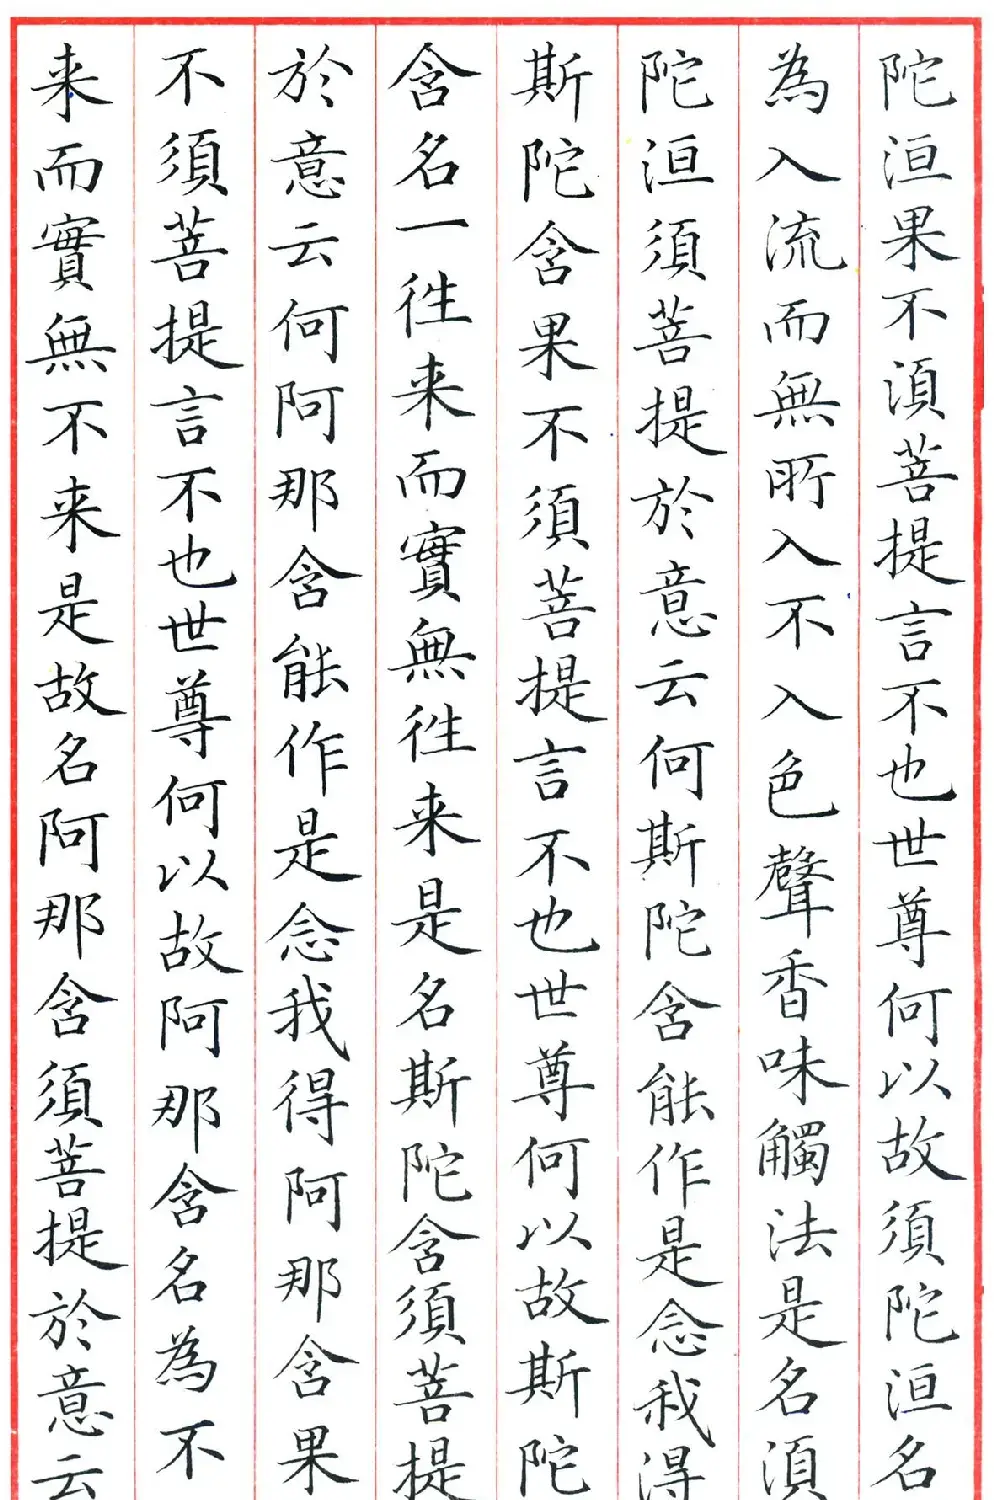 陀洹果不湏菩提言不也世尊何以故須陀洹名
為入流而無所入不入色聲香味觸法是名湏
陀洹須菩提於意云何斯陀含能作是念我得
斯陀含果不須菩提言不也世尊何以故斯陀
含名一往来而實無往来是名斯陀含須菩提
於意云何阿那含能作是念我得阿那含果
不須菩提言不也世尊何以故阿那含名為不
来而實無不来是故名阿那含須菩提於意云